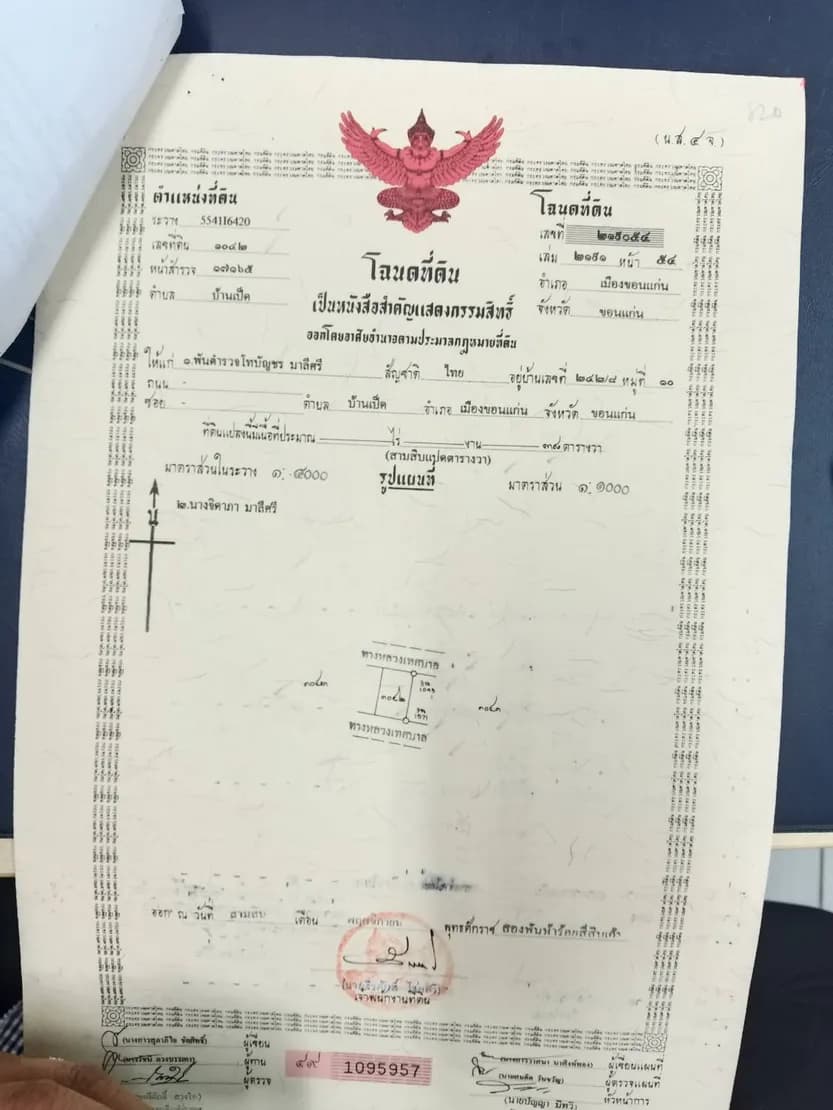 (น.ส. ๔ จ)
ตำแหน่งที่ดิน
ระวาง 5541I6420
เลขที่ดิน ๑๐๔๒
หน้าสำรวจ ๑๗๑๖๕
ตำบล บ้านเป็ด
โฉนดที่ดิน
เลขที่ ๒๑๕๐๕๔
เล่ม ๒๑๕๑ หน้า ๕๔
อำเภอ เมืองขอนแก่น
จังหวัด ขอนแก่น
โฉนดที่ดิน
เป็นหนังสือสำคัญแสดงกรรมสิทธิ์
ออกโดยอาศัยอำนาจตามประมวลกฎหมายที่ดิน
ให้แก่ ๑.พันตำรวจโทบัญชร มาลีศรี สัญชาติ ไทย อยู่บ้านเลขที่ ๒๔๒/๘ หมู่ที่ ๑๐
ถนน -
ซอย - ตำบล บ้านเป็ด อำเภอ เมืองขอนแก่น จังหวัด ขอนแก่น
ที่ดินแปลงนี้มีเนื้อที่ประมาณ ไร่ งาน ๓๘ ตารางวา
(สามสิบแปดตารางวา)
มาตราส่วนในระวาง ๑:๔๐๐๐ รูปแผนที่ มาตราส่วน ๑:๑๐๐๐
น
๒.นางจิดาภา มาลีศรี
ทางหลวงเทศบาล
๑๐๔๒
ทางหลวงเทศบาล
ออก ณ วันที่ สามสิบ เดือน พฤศจิกายน พุทธศักราช สองพันห้าร้อยสี่สิบเก้า
เจ้าพนักงานที่ดิน
ผู้เขียน
ผู้ทาน
ผู้ตรวจ
๔๙ 1095957
ผู้เขียนแผนที่
ผู้ตรวจแผนที่
หัวหน้าการ